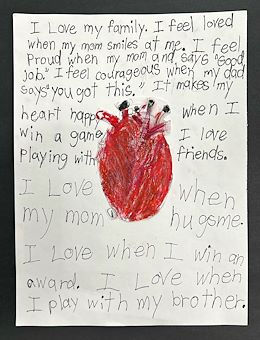 I Love my family. I feel loved
when my mom smiles at me. I feel
Proud when my mom and says "Good
job." I feel courageous when my dad
says "you got this." It makes my
heart happ when I
win a game I love
Playing with friends.
I Love when
my mom hugsme.
I Love when I win an
award. I Love when
I play with my brother.